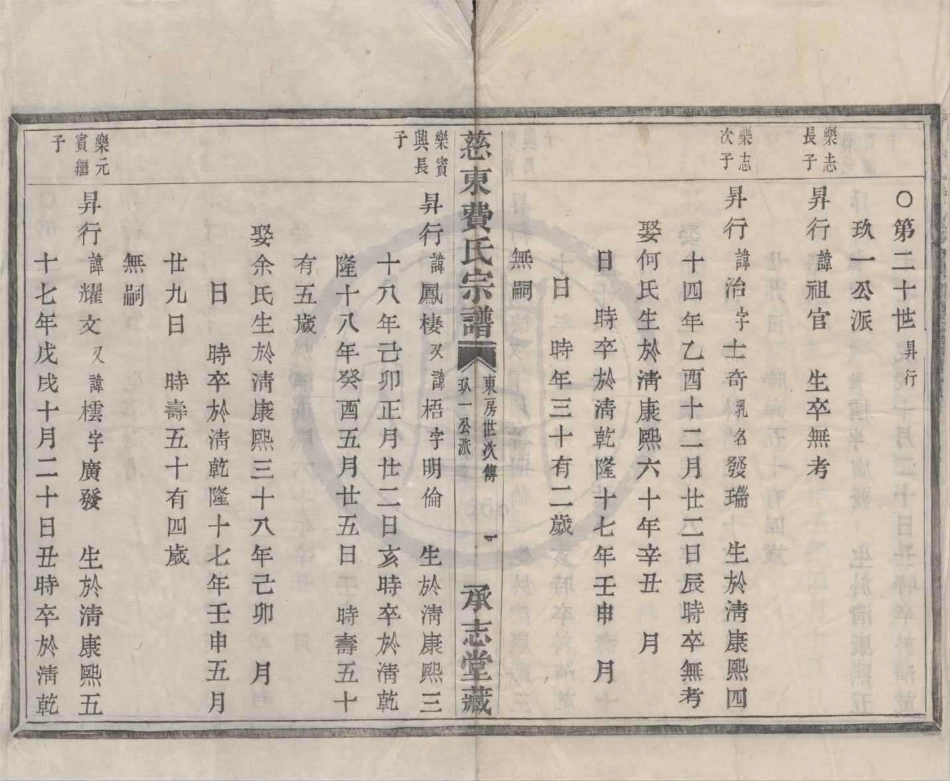 ○第二十世昇行
玖一公派
樂志
長子
昇行諱祖官 生卒無考
樂志
次子
昇行諱治字士奇乳名發瑞 生於淸康熙四
十四年乙酉十二月廿二日辰時卒無考
娶何氏生於淸康熙六十年辛丑 月
日 時卒於淸乾隆十七年壬申 月
十日 時年三十有二歲
無嗣
慈東費氏宗譜
東房世次傳
玖一公派
承志堂藏
樂賓
興長
子
昇行諱鳳棲又諱梧字明倫 生於淸康熙三
十八年己卯正月廿二日亥時卒於淸乾
隆十八年癸酉五月廿五日 時壽五十
有五歲
娶余氏生於淸康熙三十八年己卯 月
日 時卒於淸乾隆十七年壬申五月
廿九日 時壽五十有四歲
無嗣
樂元
賓繼
子
昇行諱耀文又諱橒字廣發 生於淸康熙五
十七年戊戌十月二十日丑時卒於淸乾